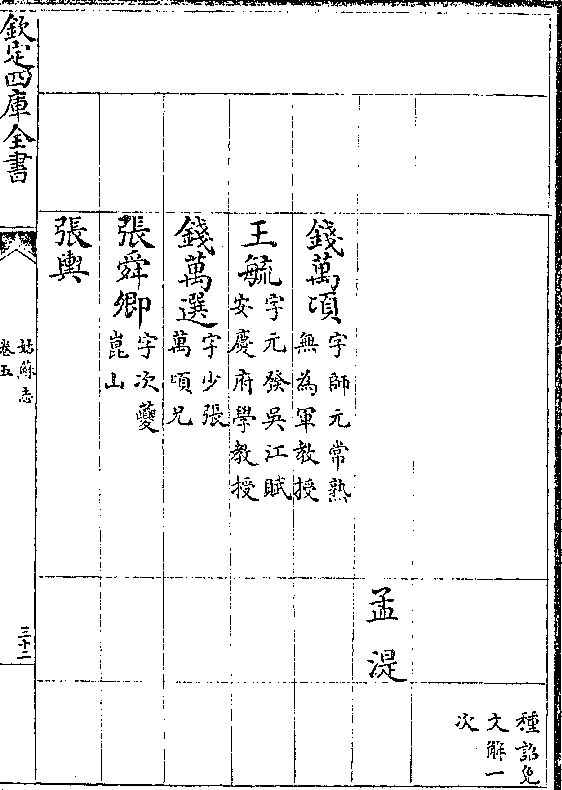 種詔免
文解一
次
孟湜
錢萬頃字師元常熟
無為軍教授
王毓字元發吳江賦
安慶府學教授
錢萬選字少張
萬頃兄
張舜卿字次夔
崑山
張輿
欽定四庫全書
姑蘇志
卷五
三十二